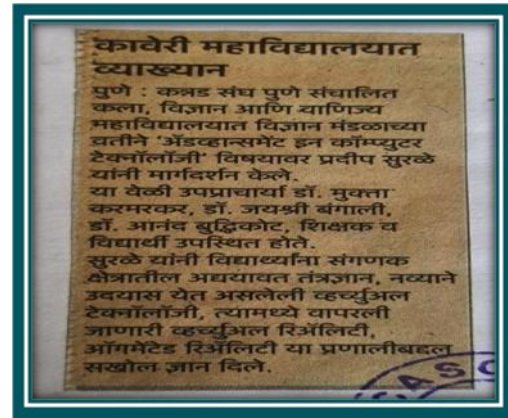 कावेरी महाविद्यालयात
व्याख्यान
पुणे : कन्नड संघ पुणे संचालित
कला, विज्ञान आणि वाणिज्य
महाविद्यालयात विज्ञान मंडळाच्या
वतीने 'ॲडव्हान्समेंट इन कॉम्प्युटर
टेक्नॉलॉजी' विषयावर प्रदीप सुरळे
यांनी मार्गदर्शन केले.
या वेळी उपप्राचार्या डॉ. मुक्ता
करमरकर, डॉ. जयश्री बंगाली,
डॉ. आनंद बुद्धिकोट, शिक्षक व
विद्यार्थी उपस्थित होते.
सुरळे यांनी विद्यार्थ्यांना संगणक
क्षेत्रातील अद्ययावत तंत्रज्ञान, नव्याने
उदयास येत असलेली व्हर्च्युअल
टेक्नॉलॉजी, त्यामध्ये वापरली
जाणारी व्हर्च्युअल रिॲलिटी,
ऑगमेंटेड रिॲलिटी या प्रणालीबद्दल
सखोल ज्ञान दिले.